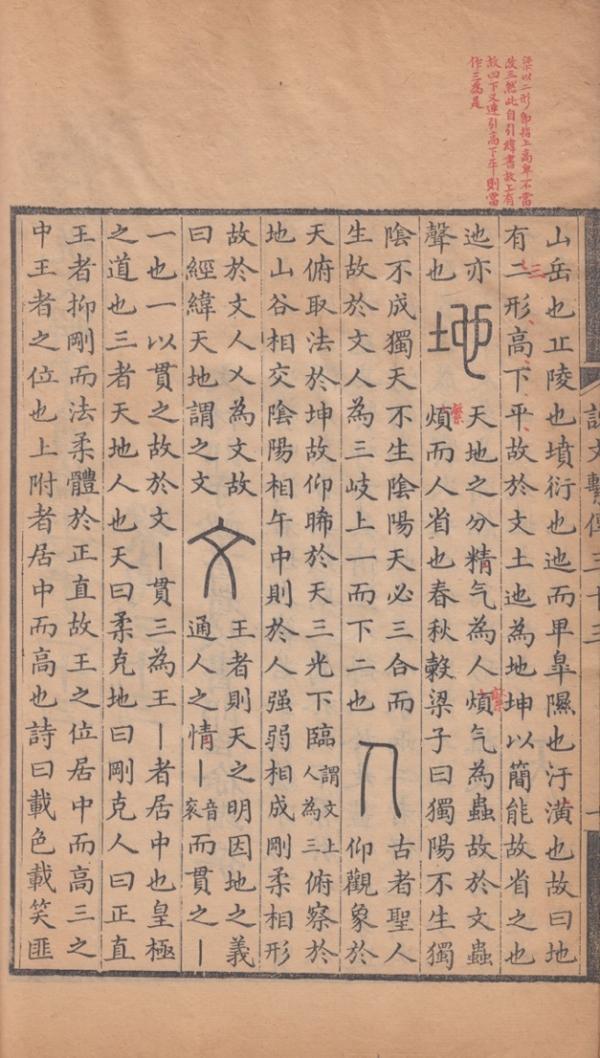 以二形即指上高卑不當
改三然此自引緯書故上有
故曰下又連引高下平則當
作三為是
說文繫傳三十三
山岳也丘陵也墳衍也迆而卑皐隰也汙潢也故曰地
有二形高下平故於文土也為地坤以簡能故省之也
三
也亦
聲也
地
天地之分精气為人煩气為蟲故於文蟲
煩而人省也春秋穀梁子曰獨陽不生獨
繫
繫
陰不成獨天不生陰陽天必三合而
生故於文人為三岐上一而下二也
人
古者聖人
仰觀象於
天俯取法於坤故仰睎於天三光下臨謂文上人為三俯察於
地山谷相交陰陽相午中則於人强弱相成剛柔相形
故於文人乂為文故
曰經緯天地謂之文
文
王者則天之明因地之義
通人之情丨音衮而貫之丨
一也一以貫之故於文丨貫三為王丨者居中也皇極
之道也三者天地人也天曰柔克地曰剛克人曰正直
王者抑剛而法柔體於正直故王之位居中而高三之
中王者之位也上附者居中而高也詩曰載色載笑匪